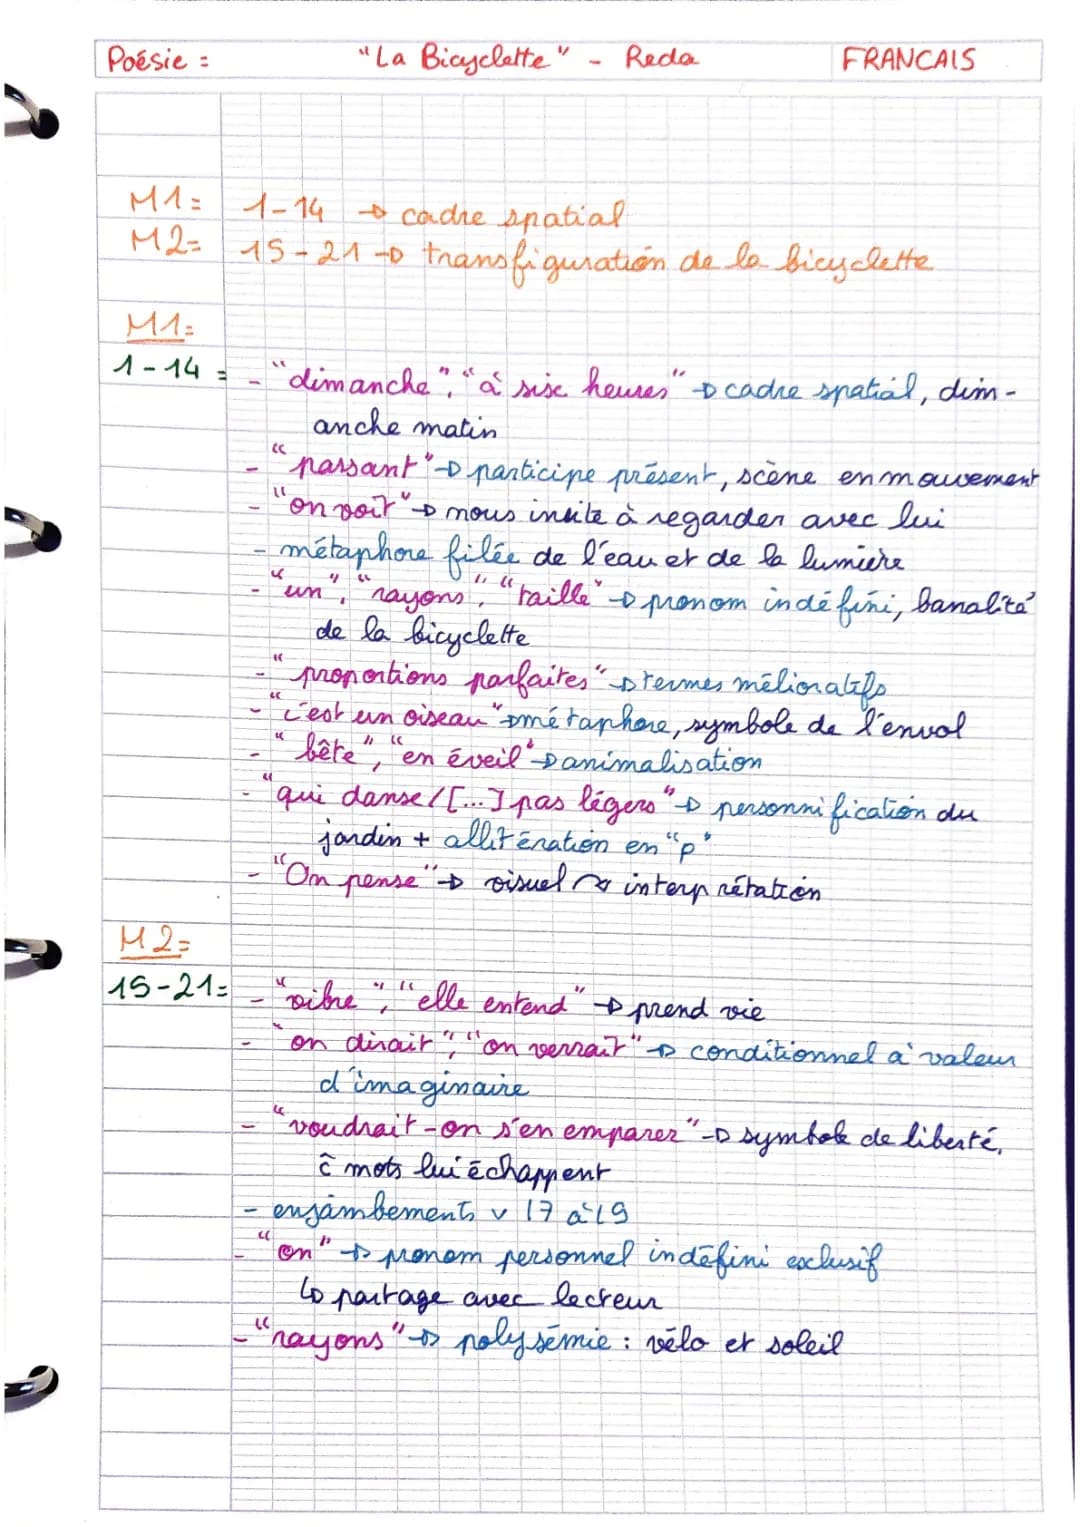 Poésie : "La Bicyclette" - Reda FRANCAIS
M1= 1-14 → cadre spatial
M2= 15-21 → transfiguration de la bicyclette
M1=
1-14 = - "dimanche", "à six heures" → cadre spatial, dim-
anche matin
- "passant" → participe présent, scène en mouvement
- "on voit" → nous invite à regarder avec lui
- métaphore filée de l'eau et de la lumière
- "un", "rayons", "taille" → pronom indéfini, banalité
de la bicyclette
- "proportions parfaites" → termes mélioratifs
- "c'est un oiseau" → métaphore, symbole de l'envol
- "bête", "en éveil" → animalisation
- "qui danse/[...] pas légers" → personnification du
jardin + allitération en "p"
- "On pense" → visuel → interprétation
M2=
15-21= - "vibre", "elle entend" → prend vie
- "on dirait", "on verrait" → conditionnel à valeur
d'imaginaire
- "voudrait-on s'en emparer" → symbole de liberté,
c̄ mots lui échappent
- enjambements v 17 à 19
- "on" → pronom personnel indéfini exclusif
↳ partage avec lecteur
- "rayons" → polysémie : vélo et soleil